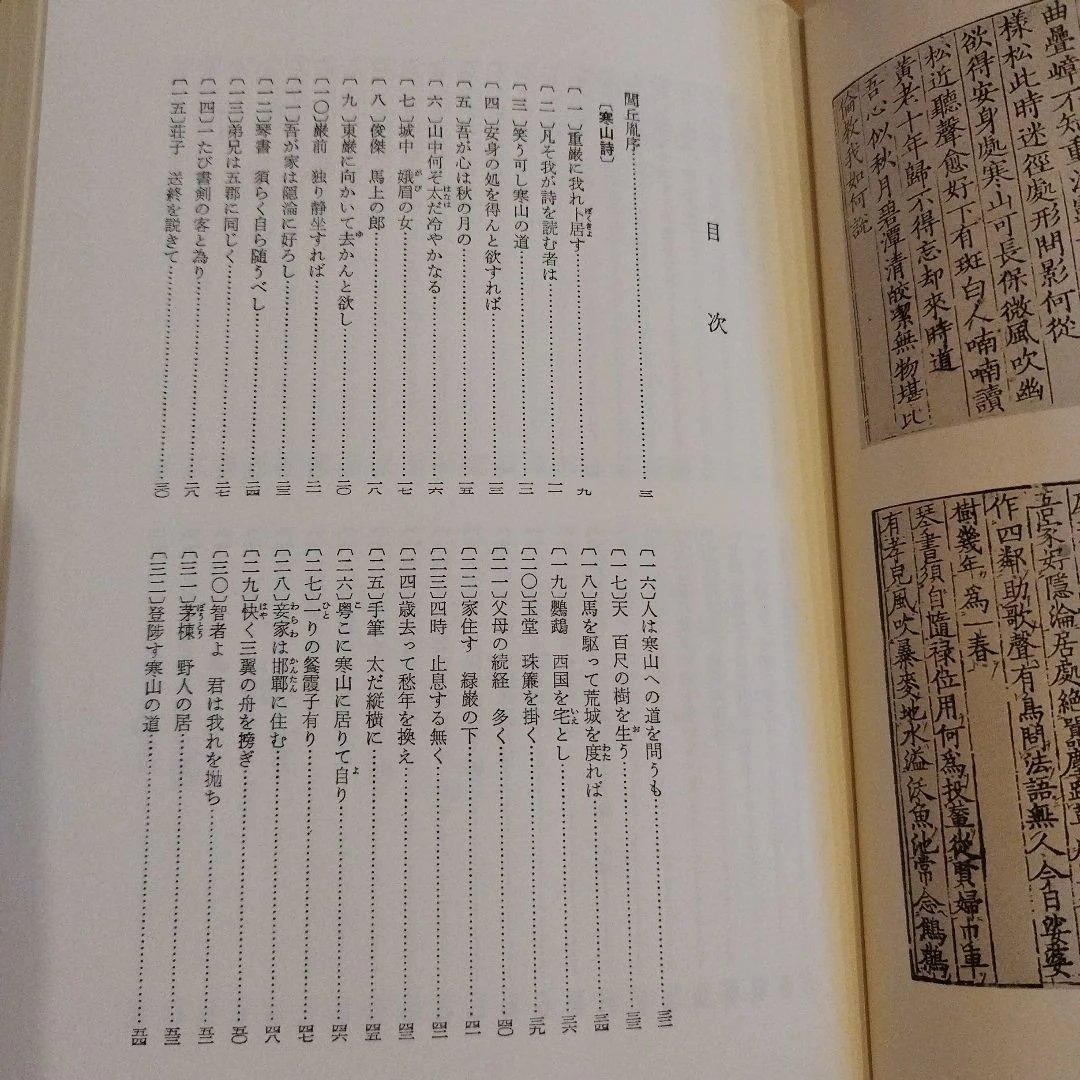 曲疊嶂不知重
樣松此時迷徑處形問影何從
欲得安身處寒山可長保微風吹幽
松近聽聲愈好下有斑白人喃喃讀
黃老十年歸不得忘却來時道
吾心似秋月碧潭清皎潔無物堪比
倫教我如何說
吾家好隱淪居處絕囂塵
作四鄰助歌聲有鳥問法語無人今日娑婆
樹幾年爲一春
琴書須自隨祿位用何爲投輦從賢婦巾車
有孝兒風吹暴麥地水溢沃魚池常念鷦鷯
目次
閭丘胤序……三
〔寒山詩〕
〔一〕重巌に我れ卜居す……九
〔二〕凡そ我が詩を読む者は……一一
〔三〕笑う可し寒山の道……一二
〔四〕安身の処を得んと欲すれば……一三
〔五〕吾が心は秋の月の……一五
〔六〕山中何ぞ太だ冷やかなる……一六
〔七〕城中　娥眉の女……一七
〔八〕俊傑　馬上の郎……一八
〔九〕東巌に向かいて去かんと欲し……二〇
〔一〇〕巌前　独り静坐すれば……二一
〔一一〕吾が家は隠淪に好ろし……二三
〔一二〕琴書　須らく自ら随うべし……二四
〔一三〕弟兄は五郡に同じく……二七
〔一四〕一たび書剣の客と為り……二八
〔一五〕荘子　送終を説きて……三〇
〔一六〕人は寒山への道を問うも……三二
〔一七〕天　百尺の樹を生う……三三
〔一八〕馬を駆って荒城を度れば……三四
〔一九〕鸚鵡　西国を宅とし……三六
〔二〇〕玉堂　珠簾を掛く……三九
〔二一〕父母の続経　多く……四〇
〔二二〕家住す　緑巌の下……四一
〔二三〕四時　止息する無く……四二
〔二四〕歳去って愁年を換え……四三
〔二五〕手筆　太だ縦横に……四五
〔二六〕粤こに寒山に居りて自り……四六
〔二七〕一りの餐霞子有り……四七
〔二八〕妾家は邯鄲に住む……四八
〔二九〕快く三翼の舟を搒ぎ……五〇
〔三〇〕智者よ　君は我れを抛ち……五二
〔三一〕茅棟　野人の居……五三
〔三二〕登陟す寒山の道……五四